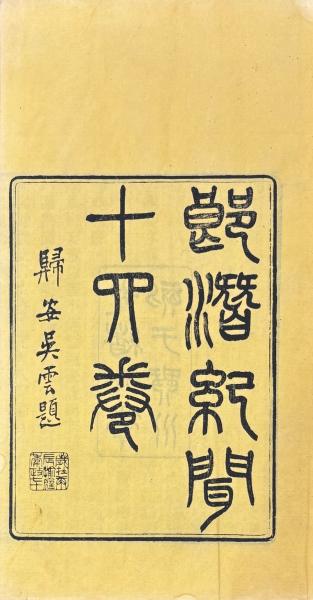 郎潛紀聞
十四卷
歸安吳雲題